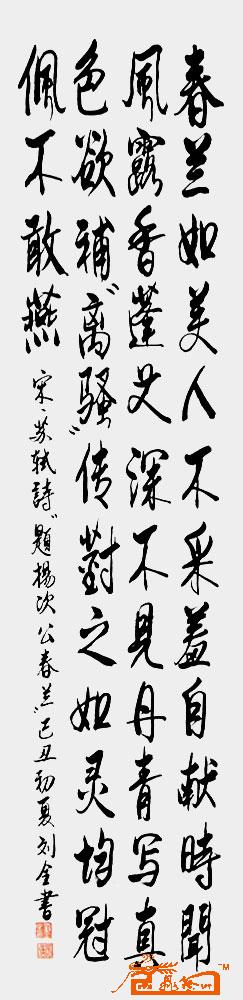 春兰如美人不采羞自献時聞
風露香蓬艾深不見丹青写真
色欲補"离騷"传對之如灵均冠
佩不敢燕
宋·苏轼詩"題楊次公春兰"己丑初夏刘全書